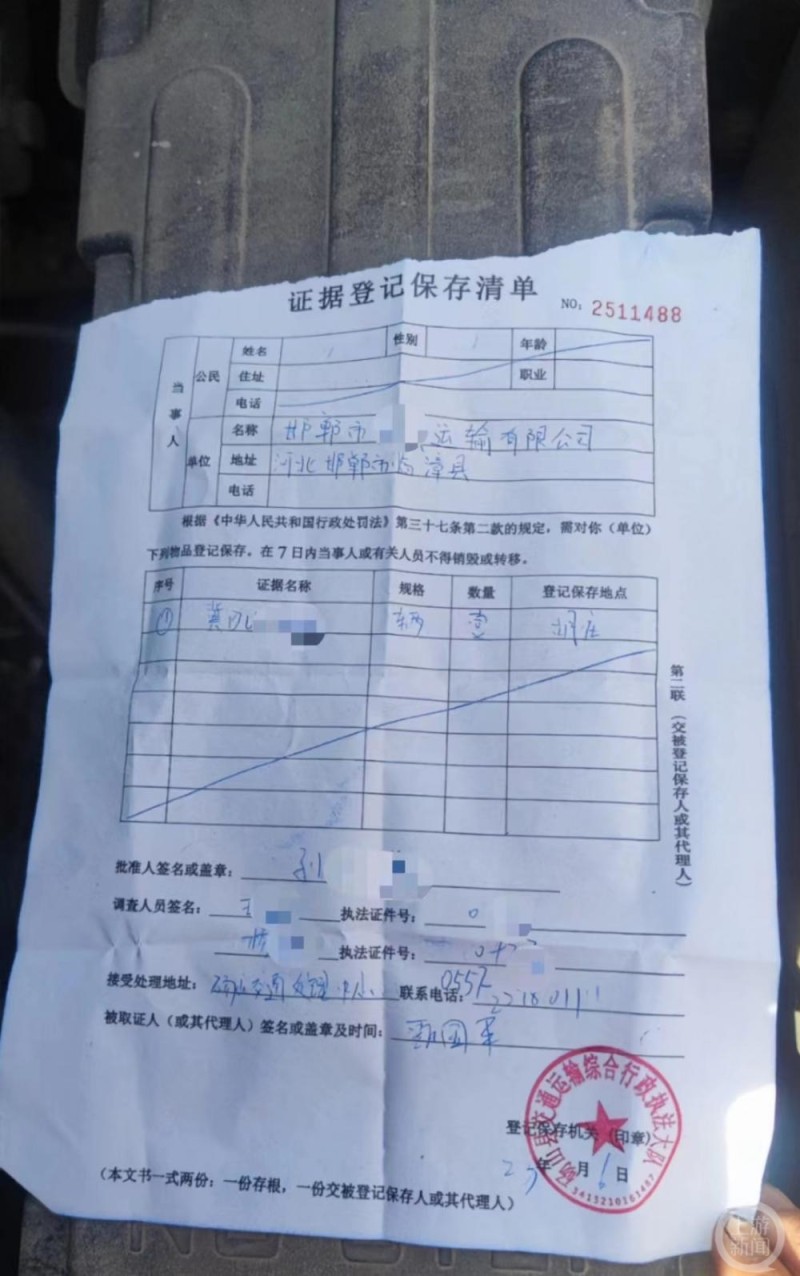 证据登记保存清单
NO: 2511488
当事人
公民
姓名
性别
年龄
住址
职业
电话
单位
名称 邯郸市 运输有限公司
地址 河北邯郸市临漳县
电话
根据《中华人民共和国行政处罚法》第三十七条第二款的规定，需对你（单位）
下列物品登记保存。在7日内当事人或有关人员不得销毁或转移。
序号 证据名称 规格 数量 登记保存地点
① 冀 辆 壹
第二联（交被登记保存人或其代理人）
批准人签名或盖章：
调查人员签名：王 执法证件号：0
执法证件号：
接受处理地址：砀山交通处理中心 联系电话：0557
被取证人（或其代理人）签名或盖章及时间：
登记保存机关（印章）
年 月 6 日
砀山县交通运输综合行政执法大队
（本文书一式两份：一份存根，一份交被登记保存人或其代理人）
上游新闻